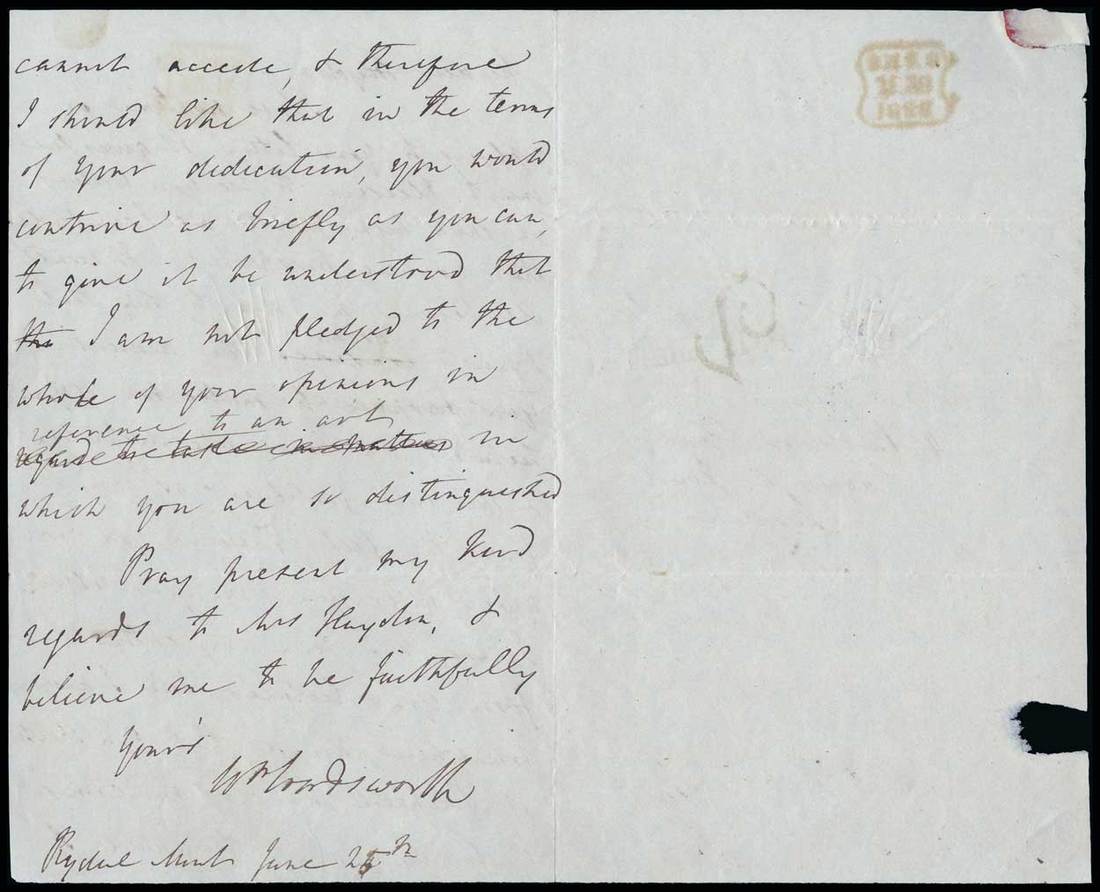 cannot accede, & therefore
I should like that in the terms
of your dedication, you would
contrive as briefly as you can,
to give it be understood that
the I am not pledged to the
whole of your opinions in
reference to an art
regard to taste in matters in
which you are so distinguished
Pray present my kind
regards to Mrs Haydon, &
believe me to be faithfully
your's
Wm Wordsworth
Rydal Mount June